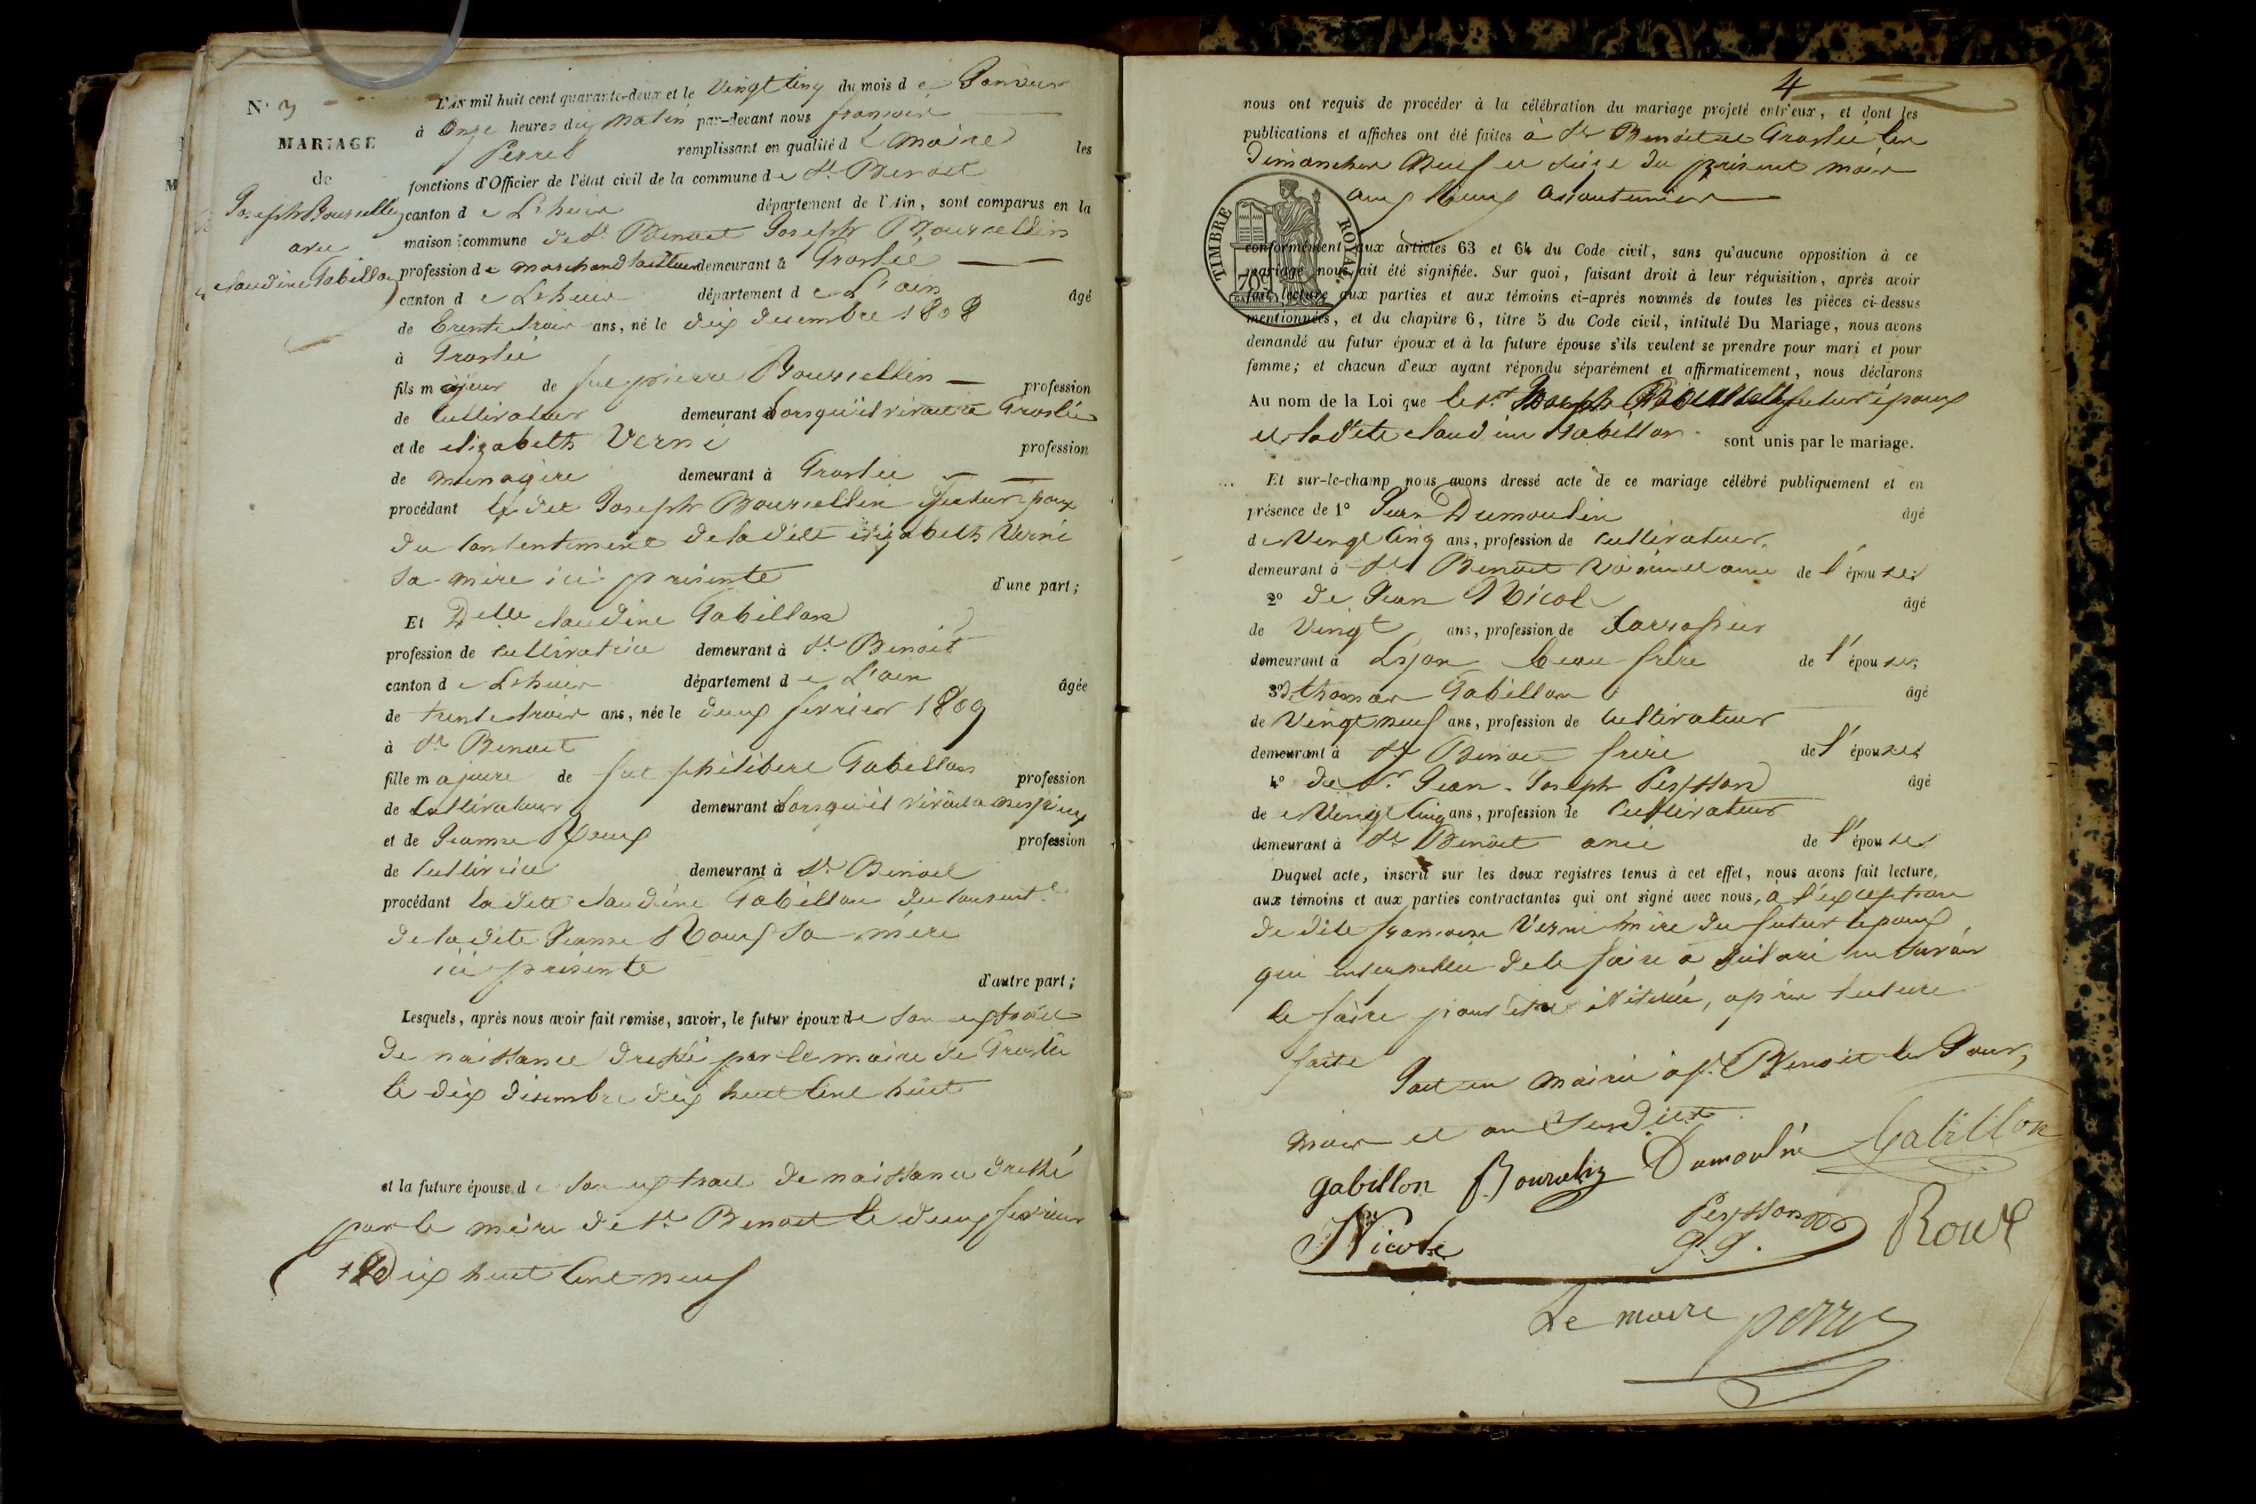 N° 3
MARIAGE
de
Joseph Bourcellin
avec
claudine Gabillon
L'AN mil huit cent quarante-deux et le vingt cinq du mois de Janvier
à onze heures du matin par-devant nous francois
Perret remplissant en qualité de maire les
fonctions d'Officier de l'état civil de la commune de St Benoit
canton de Lhuis département de l'Ain, sont comparus en la
maison commune de St Benoit Joseph Bourcellin
profession de marchand tailleur demeurant à Groslée
canton de Lhuis département de L'ain âgé
de trente trois ans, né le dix desembre 1808
à Groslée
fils majeur de feu pierre Bourcellin profession
de cultivateur demeurant lorsqu'il vivait à Groslée
et de elizabeth Verni profession
de menagère demeurant à Groslée
procédant le dit Joseph Bourcellin futur epoux
du consentement de la dite elizabeth Verni
sa mère ici présente d'une part;
Et Delle claudine Gabillon
profession de cultivatrice demeurant à St Benoit
canton de Lhuis département de L'ain âgée
de trente trois ans, née le deux fevrier 1809
à St Benoit
fille majeure de feu philibert Gabillon profession
de cultivateur demeurant lorsqu'il vivait a
et de Jeanne Roux profession
de demeurant à St Benoit
procédant la dite claudine Gabillon du consent.t
de la dite Jeanne Roux sa mère
ici présente d'autre part;
Lesquels, après nous avoir fait remise, savoir, le futur époux de son extrait
de naissance dressé par le maire de Groslée
le dix disembre dix huit cent huit
et la future épouse de son extrait de naissance dressé
par le mère de St Benoit le deux fevrier
dix huit cent neuf
4
nous ont requis de procéder à la célébration du mariage projeté entr'eux, et dont les
publications et affiches ont été faites à St Benoit et Groslée les
dimanches neuf et seize du présent mois
aux lieux acoutumés
TIMBRE ROYAL
70c
conformément aux articles 63 et 64 du Code civil, sans qu'aucune opposition à ce
mariage nous ait été signifiée. Sur quoi, faisant droit à leur réquisition, après avoir
fait lecture aux parties et aux témoins ci-après nommés de toutes les pièces ci-dessus
mentionnées, et du chapitre 6, titre 5 du Code civil, intitulé Du Mariage, nous avons
demandé au futur époux et à la future épouse s'ils veulent se prendre pour mari et pour
femme; et chacun d'eux ayant répondu séparément et affirmativement, nous déclarons
Au nom de la Loi que le sr Joseph Bourcellin futur époux
et la dite claudine Gabillon sont unis par le mariage.
Et sur-le-champ nous avons dressé acte de ce mariage célébré publiquement et en
présence de 1° Jean Dumoulin âgé
de vingt cinq ans, profession de cultivateur
demeurant à St Benoit voisin et ami de l'épouse;
2° de Jean Nicol âgé
de vingt ans, profession de
demeurant à Lyon beau frère de l'épouse;
3° de thomas Gabillon âgé
de vingt neuf ans, profession de cultivateur
demeurant à St Benoit frère de l'épouse;
4° de Sr Jean-Joseph Peysson âgé
de vingt cinq ans, profession de cultivateur
demeurant à St Benoit ami de l'épouse
Duquel acte, inscrit sur les doux registres tenus à cet effet, nous avons fait lecture,
aux témoins et aux parties contractantes qui ont signé avec nous, à l'exception
de dite francoise Verni mère du futur epoux
qui interpellée de le faire a déclaré ne savoir
le faire pour être illiterée, après lecture
faite
Fait en mairie à St Benoit les Jour,
mois et an susdit
gabillon Bourcelin Dumoulin Gabillon
Nicole Peysson J. J. Roux
Le maire perret